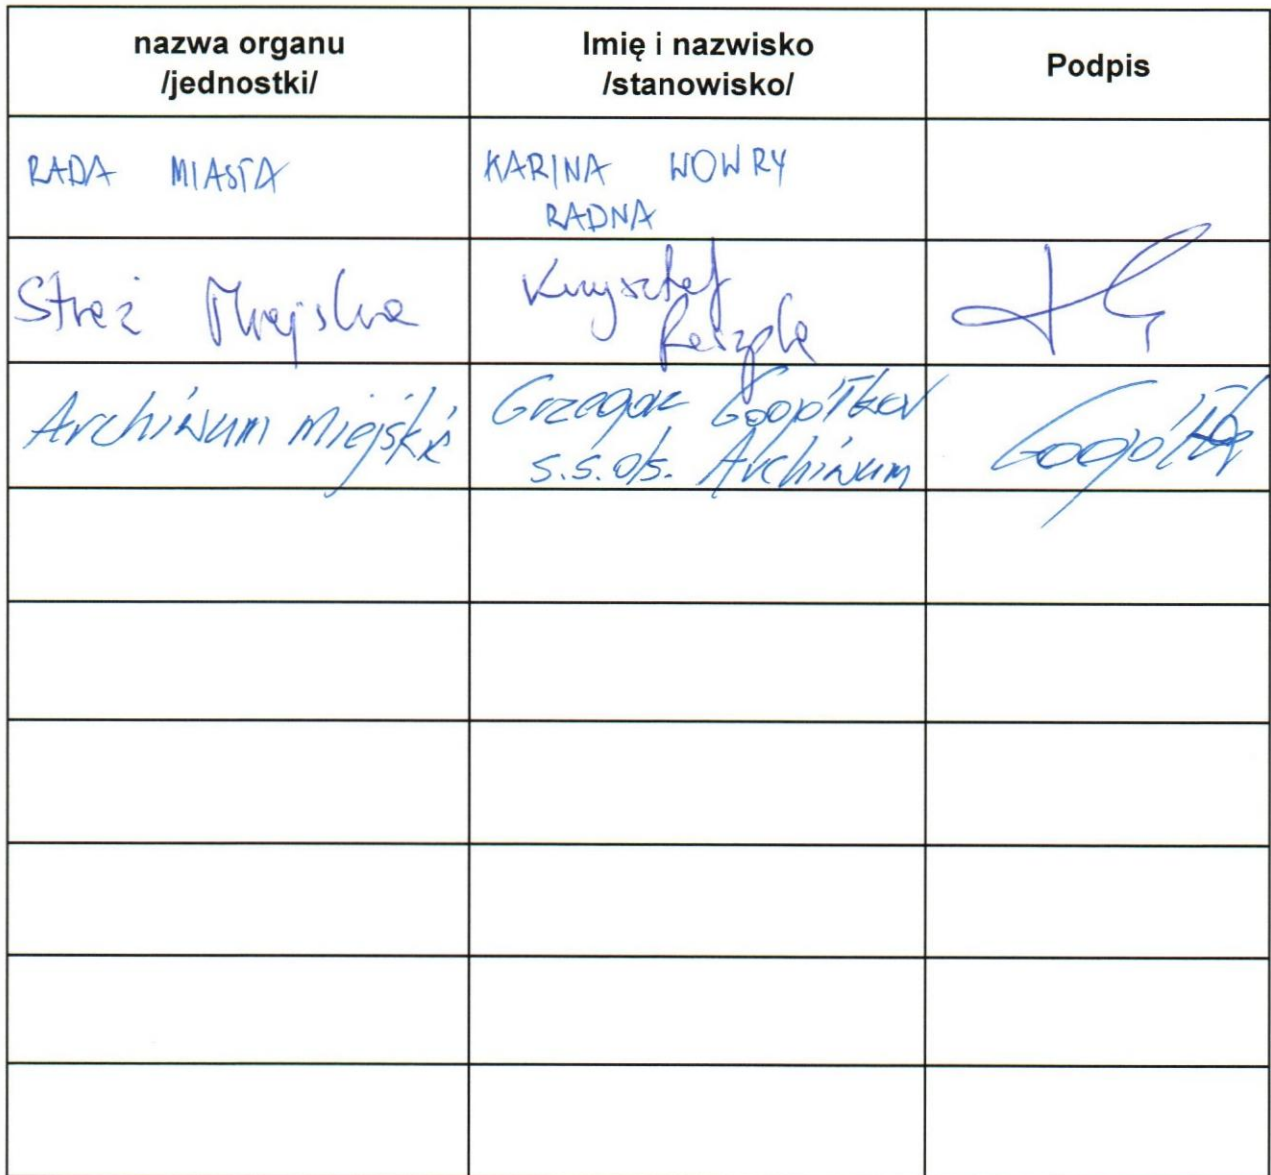 nazwa organu
/jednostki/
Imię i nazwisko
/stanowisko/
Podpis
RADA MIASTA
KARINA WOWRY
RADNA
Straż Miejska
Krzysztof
Archiwum Miejskie
Grzegorz
s.s. o/s. Archiwum